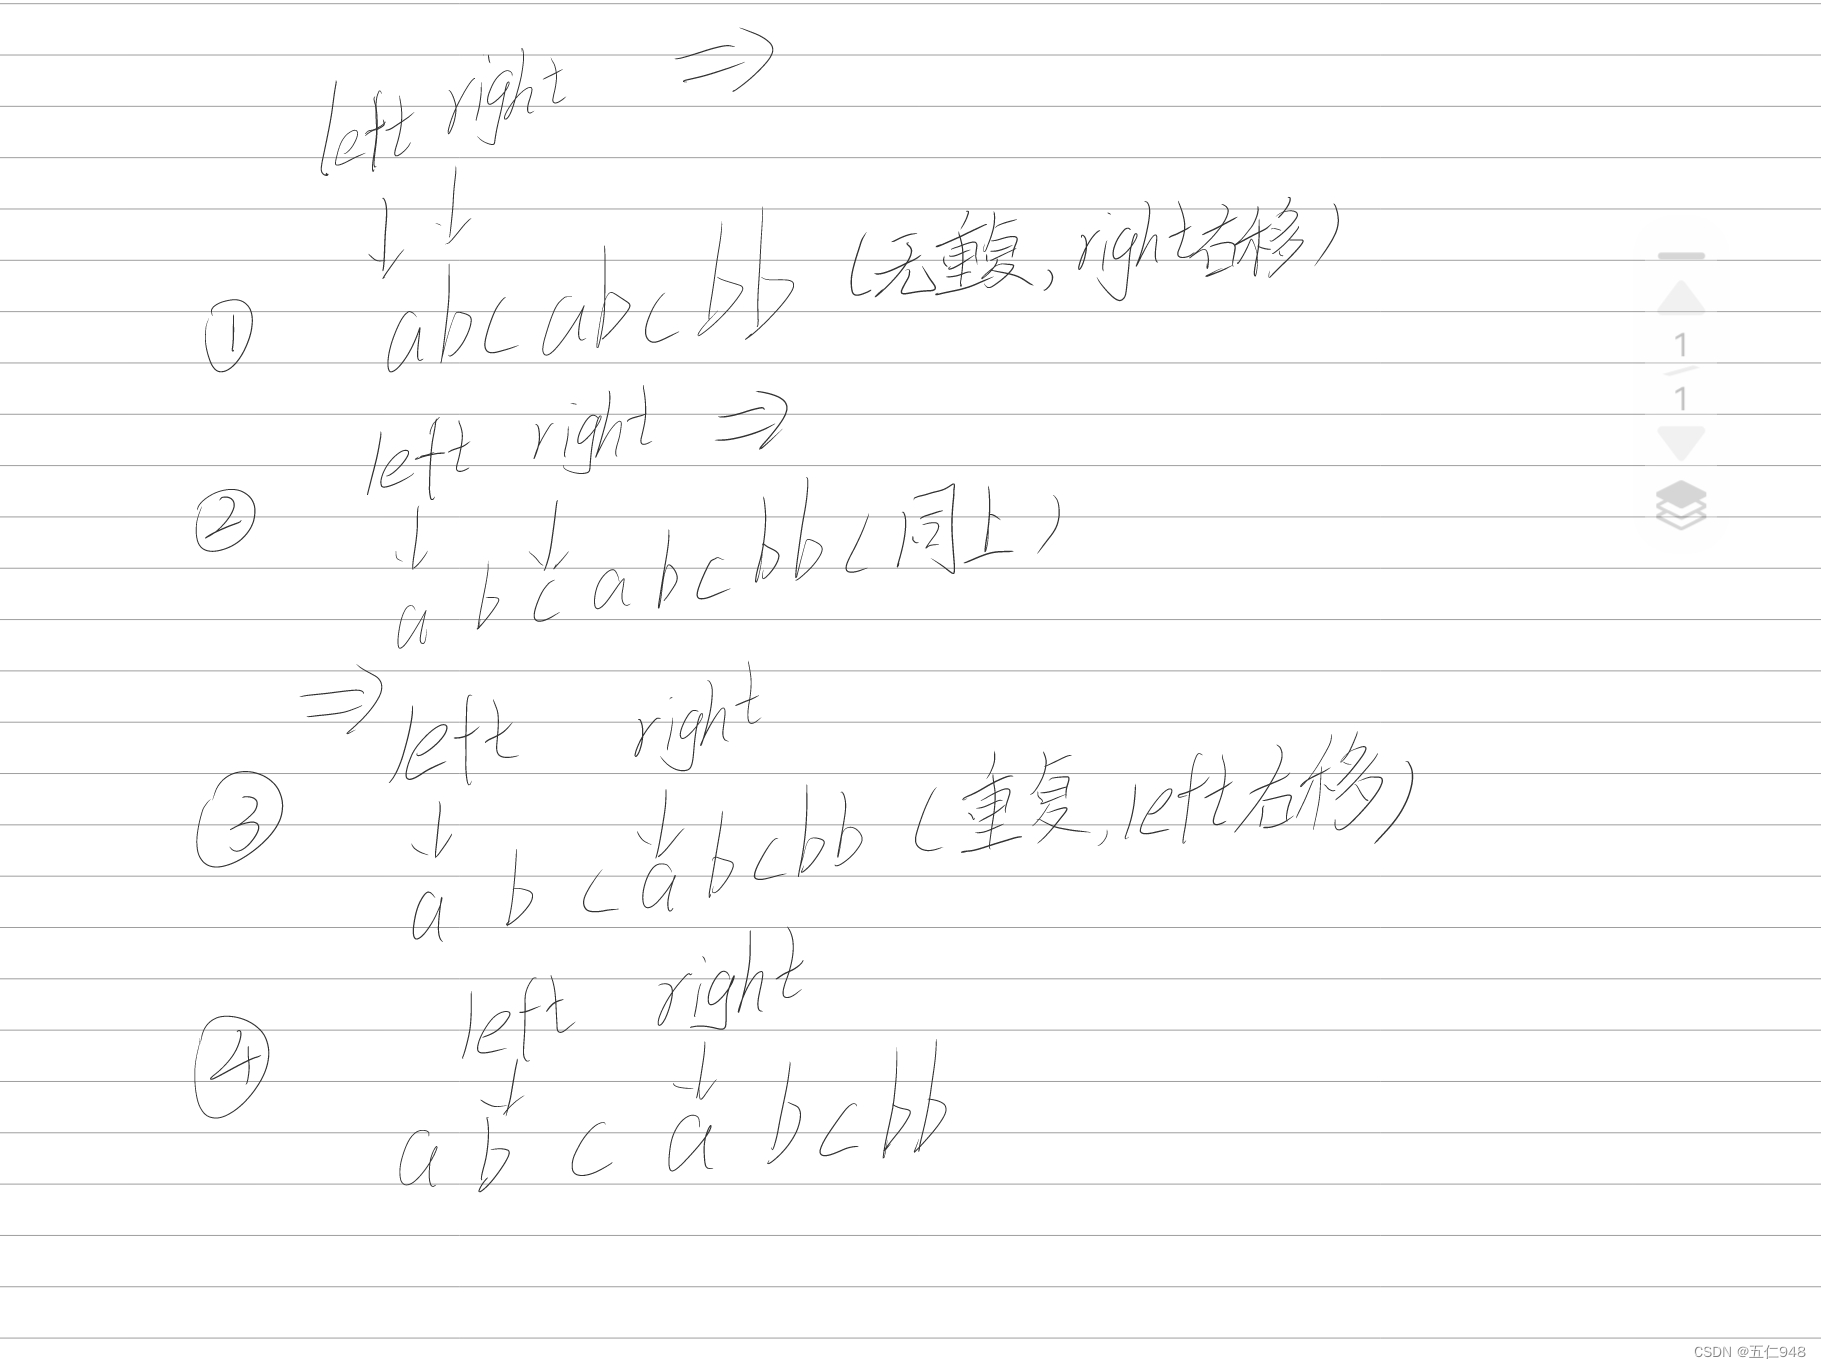 left right ⇒
① abcabcbb (无重复,right右移)
left right ⇒
② abcabcbb (同上)
⇒ left right
③ abcabcbb (重复,left右移)
left right
④ abcabcbb
1
1
CSDN @五仁948